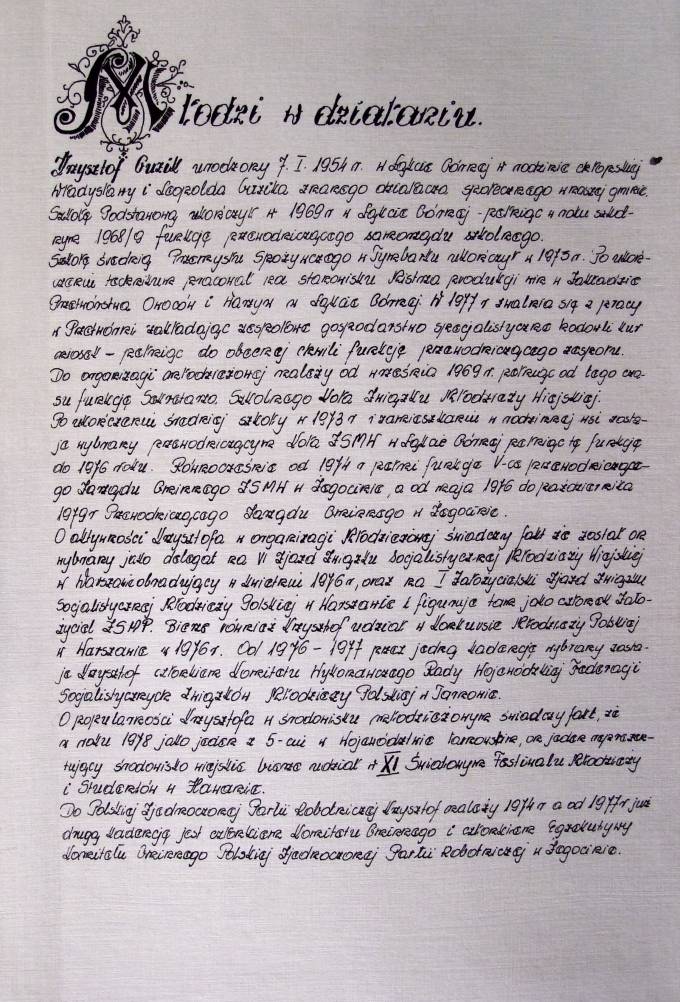 Młodzi w działaniu.
Krzysztof Guzik urodzony 7. I. 1954 r. w Łąkcie Górnej w rodzinie chłopskiej
Władysławy i Leopolda Guzika znanego działacza społecznego w naszej gminie.
Szkołę Podstawową ukończył w 1969 r w Łąkcie Górnej - pełniąc w roku szkol-
nym 1968/9 funkcję przewodniczącego samorządu szkolnego.
Szkołę średnią Przemysłu Spożywczego w Tymbarku ukończył w 1973 r. Po ukoń-
czeniu technikum pracował na stanowisku Mistrza produkcji w Zakładzie
Przetwórstwa Owoców i Warzyw w Łąkcie Górnej. W 1977 r zwalnia się z pracy
w Przetwórni zakładając zespołowe gospodarstwo specjalistyczne hodowli kur
niosek - pełniąc do obecnej chwili funkcję przewodniczącego zespołu.
Do organizacji młodzieżowej należy od września 1969 r. pełniąc od tego cza-
su funkcję Sekretarza Szkolnego Koła Związku Młodzieży Wiejskiej.
Po ukończeniu średniej szkoły w 1973 r i zamieszkaniu w rodzinnej wsi zosta-
je wybrany przewodniczącym Koła ZSMW w Łąkcie Górnej pełniąc tę funkcję
do 1976 roku. Równocześnie od 1974 r pełni funkcję V-ce przewodniczące-
go Zarządu Gminnego ZSMW w Żegocinie, a od maja 1976 do października
1979 r Przewodniczącego Zarządu Gminnego w Żegocinie.
O aktywności Krzysztofa w organizacji Młodzieżowej świadczy fakt że został on
wybrany jako delegat na VI Zjazd Związku Socjalistycznej Młodzieży Wiejskiej
w Warszawie obradujący w kwietniu 1976 r, oraz na I Założycielski Zjazd Związku
Socjalistycznej Młodzieży Polskiej w Warszawie i figuruje tam jako członek Zało-
życiel ZSMP. Bierze również Krzysztof udział w Konkursie Młodzieży Polskiej
w Warszawie w 1976 r. Od 1976 - 1977 przez jedną kadencję wybrany zosta-
je Krzysztof członkiem Komitetu Wykonawczego Rady Wojewódzkiej Federacji
Socjalistycznych Związków Młodzieży Polskiej w Tarnowie.
O popularności Krzysztofa w środowisku młodzieżowym świadczy fakt, że
w roku 1978 jako jeden z 5-ciu w Województwie tarnowskim, on jeden reprezen-
tujący środowisko wiejskie bierze udział w XI Światowym Festiwalu Młodzieży
i Studentów w Hawanie.
Do Polskiej Zjednoczonej Partii Robotniczej Krzysztof należy 1974 r a od 1977 r już
drugą kadencję jest członkiem Komitetu Gminnego i członkiem Egzekutywy
Komitetu Gminnego Polskiej Zjednoczonej Partii Robotniczej w Żegocinie.